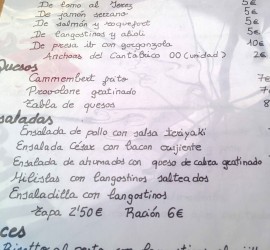 De lomo al Jerez 5€
De jamón serrano 5€
De salmón y roquefort 5€
De langostinos y alioli 5€
De presa ibr con gorgonzola 10€
Anchoas del Cantábrico 00 (unidad) 2€
Quesos
Cammembert frito 7
Provolone gratinado 7
Tabla de quesos 8
saladas
Ensalada de pollo con salsa teriyaki
Ensalada César con bacon crujiente
Ensalada de ahumados con queso de cabra gratinado
Milislas con langostinos salteados
Ensaladilla con langostinos
Tapa 2'50€ Ración 6€
ces